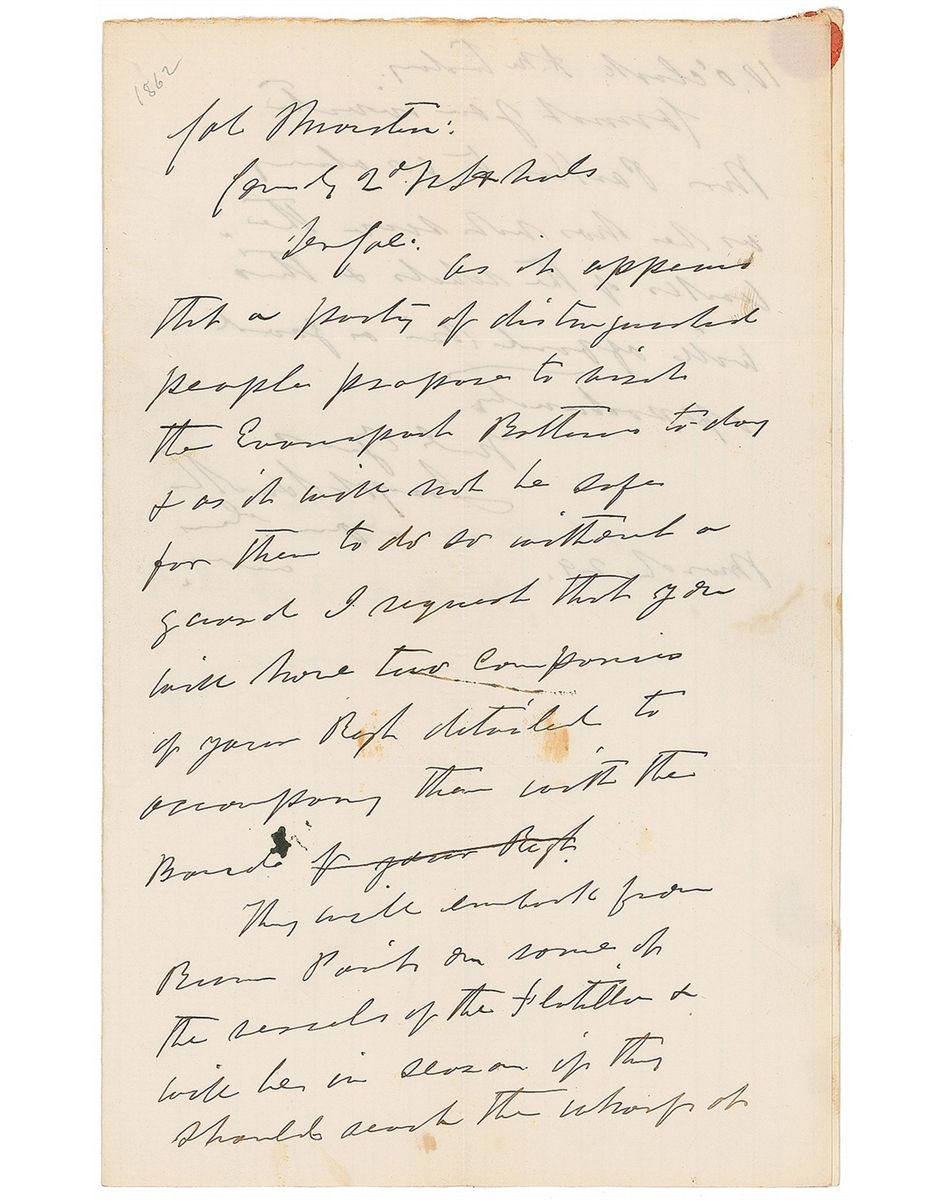 1862
Col Marston:
Comdg 2d N H Vols
Dr Col:
as it appears
that a party of distinguished
people propose to visit
the Evansport Batteries to day
& as it will not be safe
for them to do so without a
guard I request that you
will have two Companies
of your Regt detailed to
accompany them with the
Band of your Regt.
They will embark from
Point on some of
the vessels of the Flotilla &
will be in season if they
should reach the wharf at